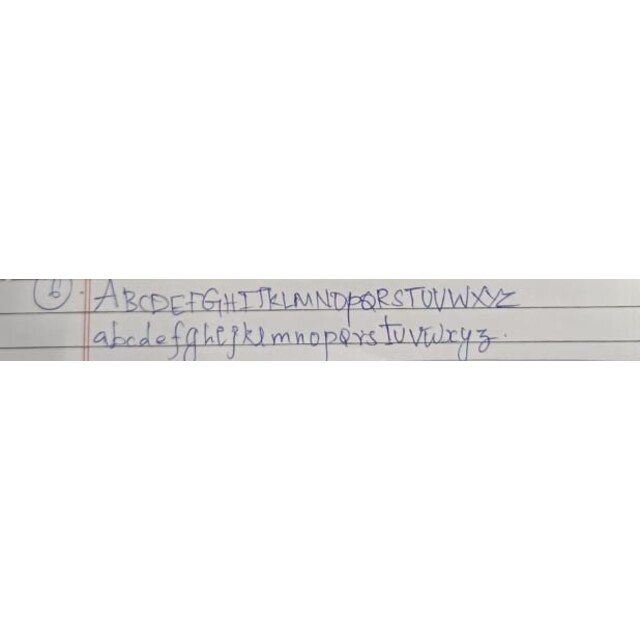 6. ABCDEFGHIJKLMNOPQRSTUVWXYZ
abcdefghijklmnopqrstuvwxyz.